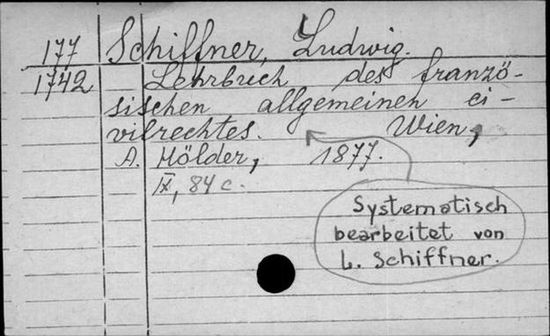 177 Schiffner, Ludwig.
1742 Lehrbuch des franzö-
sischen allgemeinen ci-
vilrechtes. Wien,
A. Hölder, 1877.
IX, 84 c.
Systematisch
bearbeitet von
L. Schiffner.